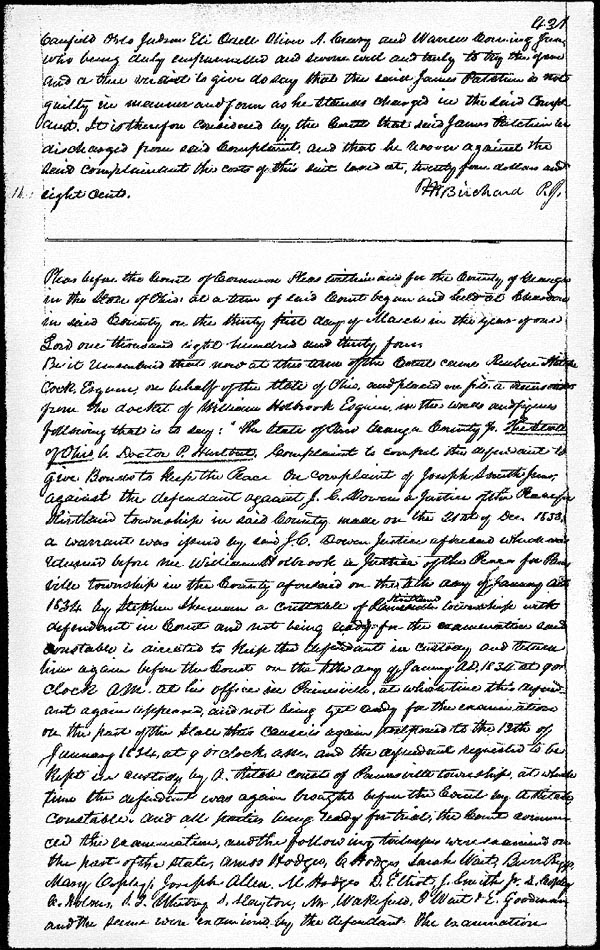 421
Canfield Orlo Judson Eli Odell Oliver A. Crary and Warren Corning Jun.
who being duly empannelled and sworn well and truly to try the
and a true verdict to give do say that the said James Patchin is not
guilty in manner and form as he stands charged in the said Compl
aint. It is therefore considered by the Court that said James Patchin be
discharged from said Complaint, and that he recover against the
said complainant the costs of this suit taxed at, twenty four dollars and
eight cents. Birchard P.J.
Pleas before the Court of Common Pleas within and for the County of Geauga
in the State of Ohio at a term of said Court begun and held at Chardon
in said County on the thirty first day of March in the year of our
Lord one thousand eight hundred and thirty four
Be it remembered that now at this term of the Court came Reuben Hitch
cock, Esquire, on behalf of the State of Ohio, and placed on file a
from the docket of William Holbrook Esquire, in the words and figures
following that is to say: " The State of Ohio Geauga County Ss. The State
of Ohio vs Doctor P. Hurlbut, Complaint to compel the defendant to
give Bonds to keep the Peace On complaint of Joseph Smith Junr,
against the defendant against J. C. Dowen a Justice of the Peace for
Kirtland township in said County made on the 21st of Dec. 1833,
a warrant was issued by said J. C. Dowen Justice aforesaid which was
returned before me William Holbrook a Justice of the Peace for Pain
ville township in the County aforesaid on the day of January AD
1834 by Stephen Sherman a constable of Kirtland township with
defendant in Court and not being ready for the examination said
constable is directed to keep the defendant in custody and
him again before the Court on the day of January AD. 1834 at 9 o
clock AM. at his office in Painesville, at which time the defend
ant again appeared, and not being yet ready for the examination
on the part of the State this cause is again postponed to the 13th of
January 1834, at 9 o'clock AM. and the defendant requested to be
kept in custody by A. Ritch const of Painesville township, at which
time the defendant was again brought before the Court by A Ritch
constable. and all parties being ready for trial, the Court commen
ced the examination, and the following witnesses were examined on
the part of the state, Amos Hodges, C Hodges, Sarah Wait, Burr Riggs
Mary Copley, Joseph Allen. M Hodges D. Elliot, J. Smith Jr. D. Copley
C. Holmes, S. F. Whitney S. Slayton, Mr Wakefield. W Wait & E. Goodman
and the same were examined by the defendant The examination